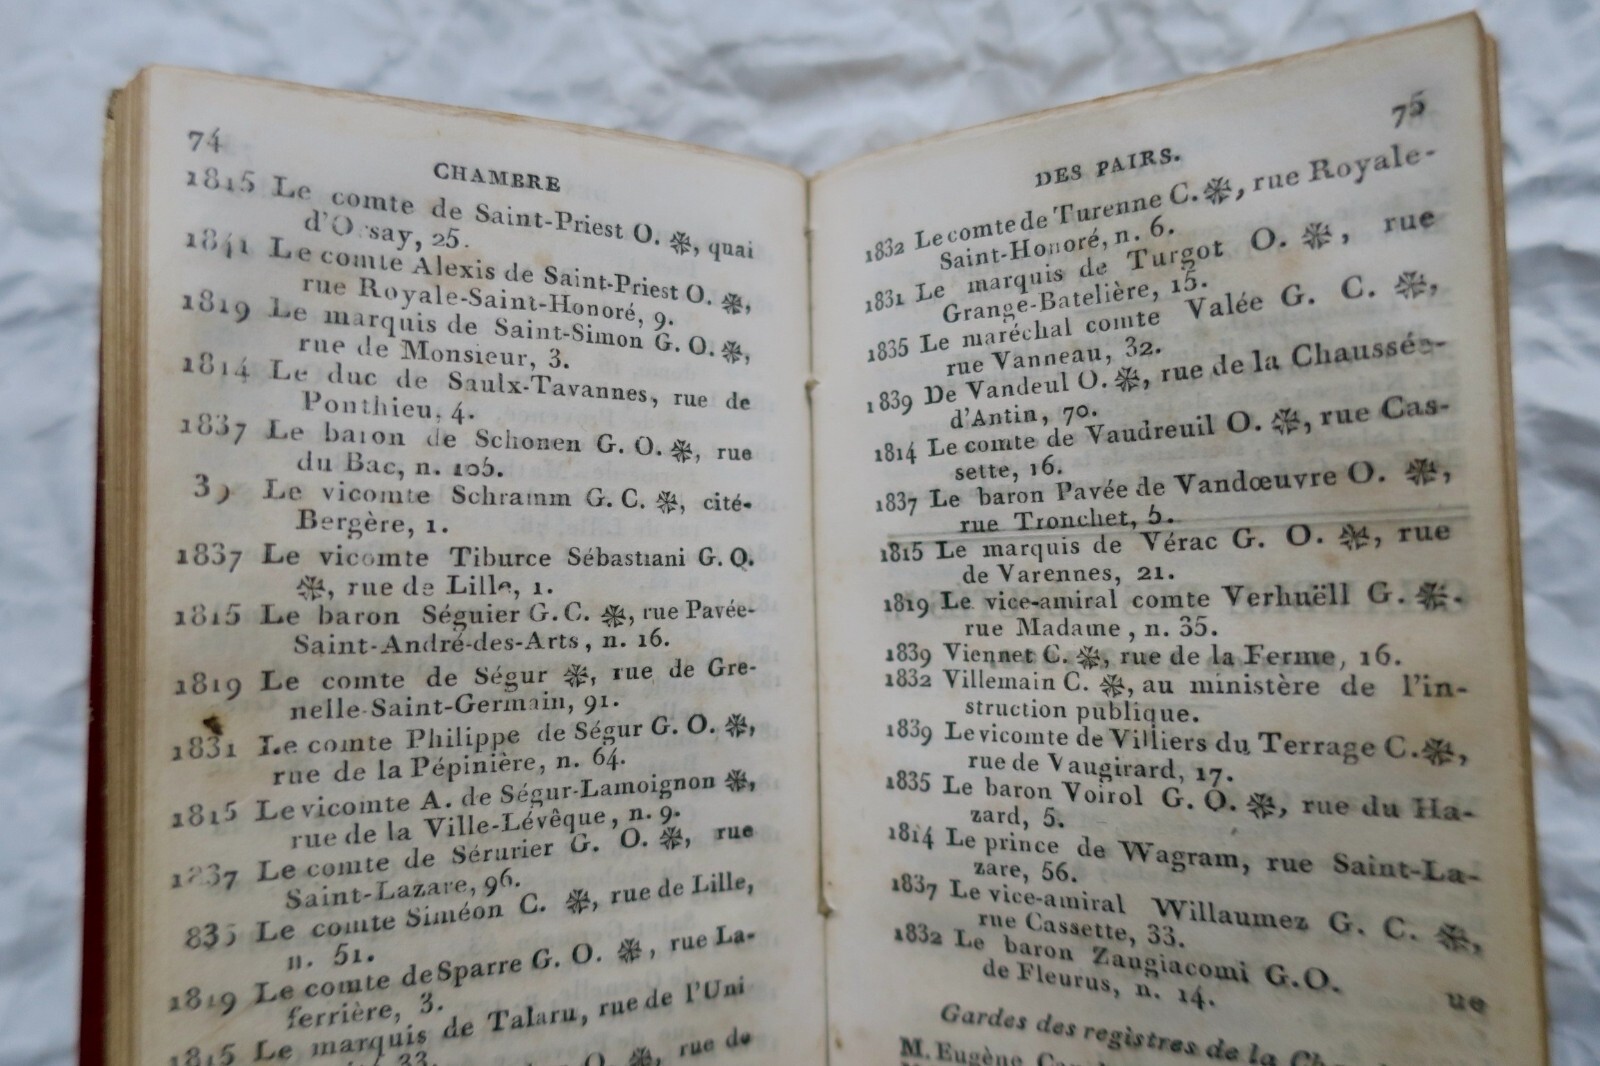 74
CHAMBRE
1815 Le comte de Saint-Priest O. ❋, quai
d'Orsay, 25.
1841 Le comte Alexis de Saint-Priest O. ❋,
rue Royale-Saint-Honoré, 9.
1819 Le marquis de Saint-Simon G. O. ❋,
rue de Monsieur, 3.
1814 Le duc de Saulx-Tavannes, rue de
Ponthieu, 4.
1837 Le baron de Schonen G. O. ❋, rue
du Bac, n. 105.
39 Le vicomte Schramm G. C. ❋, cité-
Bergère, 1.
1837 Le vicomte Tiburce Sébastiani G. O.
❋, rue de Lille, 1.
1815 Le baron Séguier G. C. ❋, rue Pavée-
Saint-André-des-Arts, n. 16.
1819 Le comte de Ségur ❋, rue de Gre-
nelle-Saint-Germain, 91.
1831 Le comte Philippe de Ségur G. O. ❋,
rue de la Pépinière, n. 64.
1815 Le vicomte A. de Ségur-Lamoignon ❋,
rue de la Ville-Lévêque, n. 9.
1837 Le comte de Sérurier G. O. ❋, rue
Saint-Lazare, 96.
835 Le comte Siméon C. ❋, rue de Lille,
n. 51.
1819 Le comte de Sparre G. O. ❋, rue La-
ferrière, 3.
1815 Le marquis de Talaru, rue de l'Uni
33.
O. ❋, rue de
75
DES PAIRS.
1832 Le comte de Turenne C. ❋, rue Royale-
Saint-Honoré, n. 6.
1831 Le marquis de Turgot O. ❋, rue
Grange-Batelière, 15.
1835 Le maréchal comte Valée G. C. ❋,
rue Vanneau, 32.
1839 De Vandeul O. ❋, rue de la Chaussée-
d'Antin, 70.
1814 Le comte de Vaudreuil O. ❋, rue Cas-
sette, 16.
1837 Le baron Pavée de Vandœuvre O. ❋,
rue Tronchet, 5.
1815 Le marquis de Vérac G. O. ❋, rue
de Varennes, 21.
1819 Le vice-amiral comte Verhuëll G. ❋.
rue Madame, n. 35.
1839 Viennet C. ❋, rue de la Ferme, 16.
1832 Villemain C. ❋, au ministère de l'in-
struction publique.
1839 Le vicomte de Villiers du Terrage C. ❋,
rue de Vaugirard, 17.
1835 Le baron Voirol G. O. ❋, rue du Ha-
zard, 5.
1814 Le prince de Wagram, rue Saint-La-
zare, 56.
1837 Le vice-amiral Willaumez G. C. ❋,
rue Cassette, 33.
1832 Le baron Zangiacomi G. O. ue
de Fleurus, n. 14.
Gardes des registres de la Ch
M. Eugène